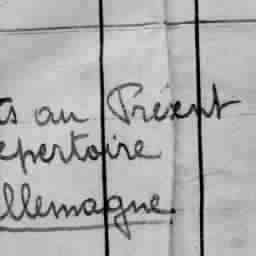 ts au Présent
epertoire
llemagne.